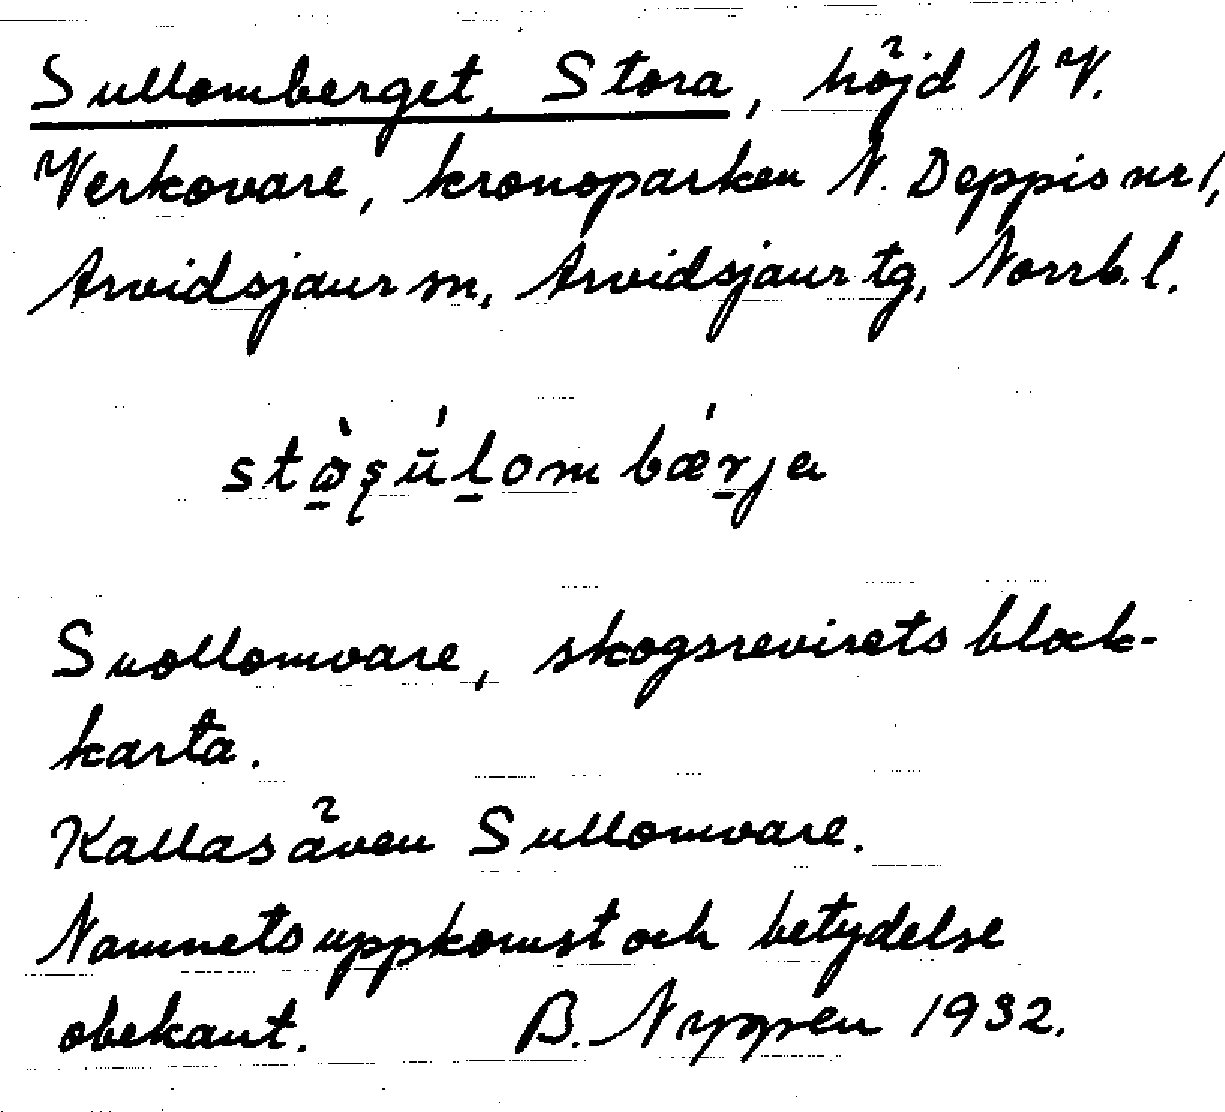 Sullomberget, Stora, höjd NV.
Verkovare, kronoparken N. Deppis nr 1,
Arvidsjaur sn, Arvidsjaur tg, Norrb. l.
Suollomvare, skogsrevirets block-
karta.
Kallas även Sullomvare.
Namnets uppkomst och betydelse
obekant. B. Nygren 1932.